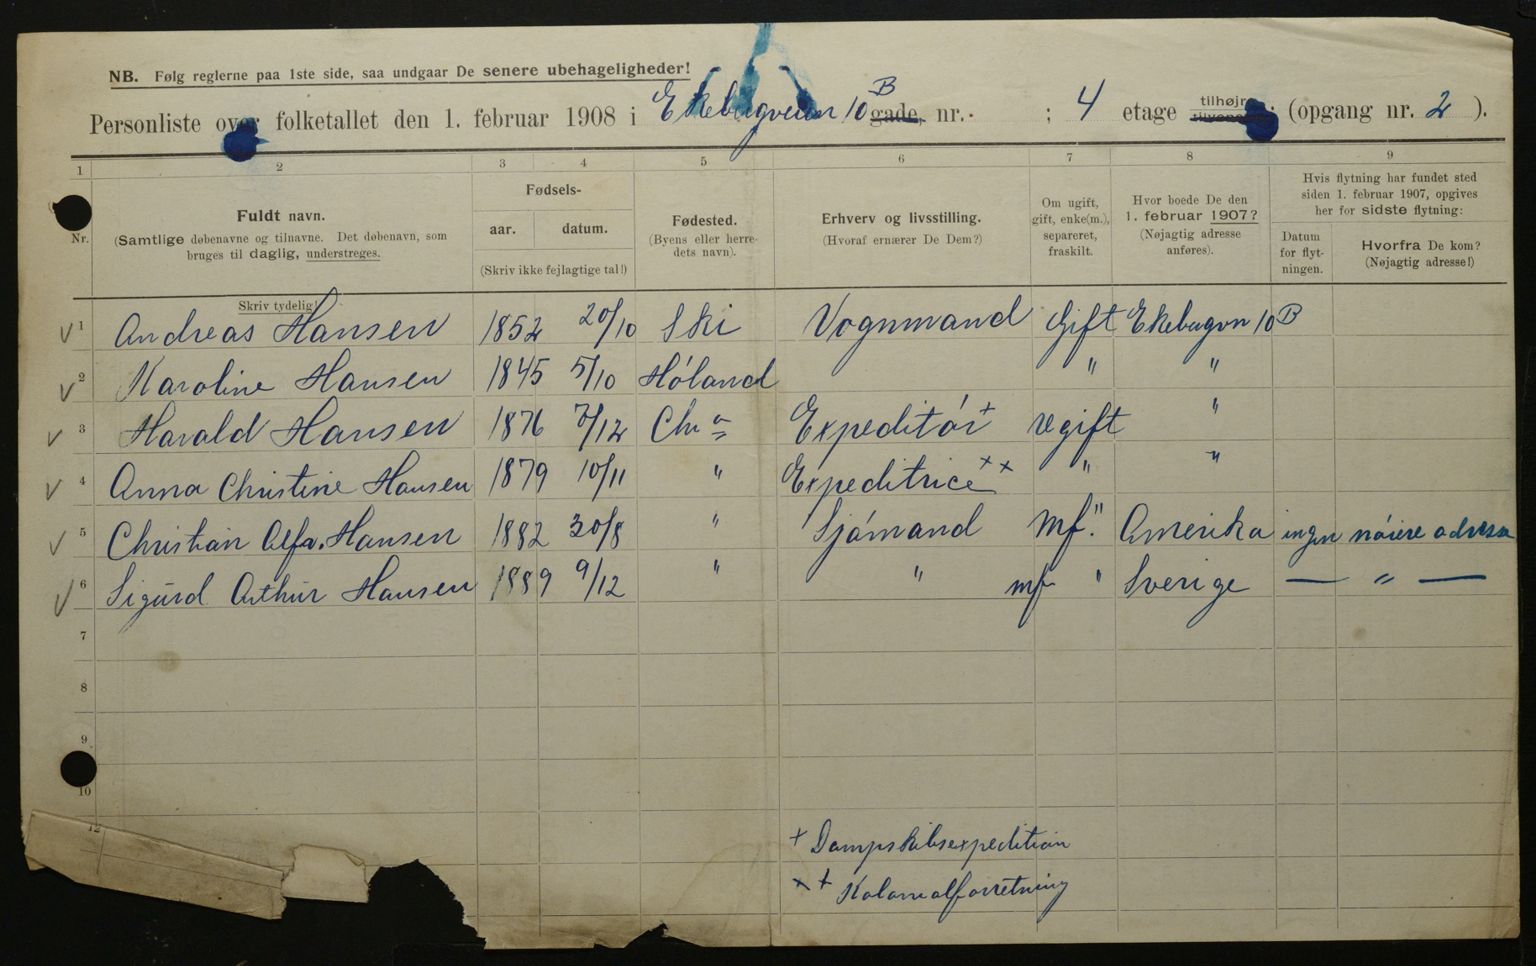 NB. Følg reglerne paa 1ste side, saa undgaar De senere ubehageligheder!
Personliste over folketallet den 1. februar 1908 i Ekebergveien 10 B gade, nr. ; 4 etage tilhøjre (opgang nr. 2 ).
1 2 3 4 5 6 7 8 9
Nr.
Fuldt navn.
(Samtlige døbenavne og tilnavne. Det døbenavn, som
bruges til daglig, understreges.
Skriv tydelig!
Fødsels-
aar. datum.
(Skriv ikke fejlagtige tal!)
Fødested.
(Byens eller herre-
dets navn).
Erhverv og livsstilling.
(Hvoraf ernærer De Dem?)
Om ugift,
gift, enke(m.),
separeret,
fraskilt.
Hvor boede De den
1. februar 1907?
(Nøjagtig adresse
anføres).
Hvis flytning har fundet sted
siden 1. februar 1907, opgives
her for sidste flytning:
Datum
for flyt-
ningen.
Hvorfra De kom?
(Nøjagtig adresse!)
√ 1 Andreas Hansen 1852 20/10 Ski Vognmand Gift Ekebugvn 10 B
√ 2 Karoline Hansen 1845 5/10 Høland " "
√ 3 Harald Hansen 1876 7/12 Chr a Expeditór + Ugift "
√ 4 Anna Christine Hansen 1879 10/11 " Expeditrice ++ " "
√ 5 Christian Alfr. Hansen 1882 30/8 " Sjómand mf. " Amerika ingen nóiere adresse
√ 6 Sigurd Arthur Hansen 1889 9/12 " " mf " Sverige — " —
7
8
9
10
12
+ Dampskibsexpedition
++ Kolonialforretning